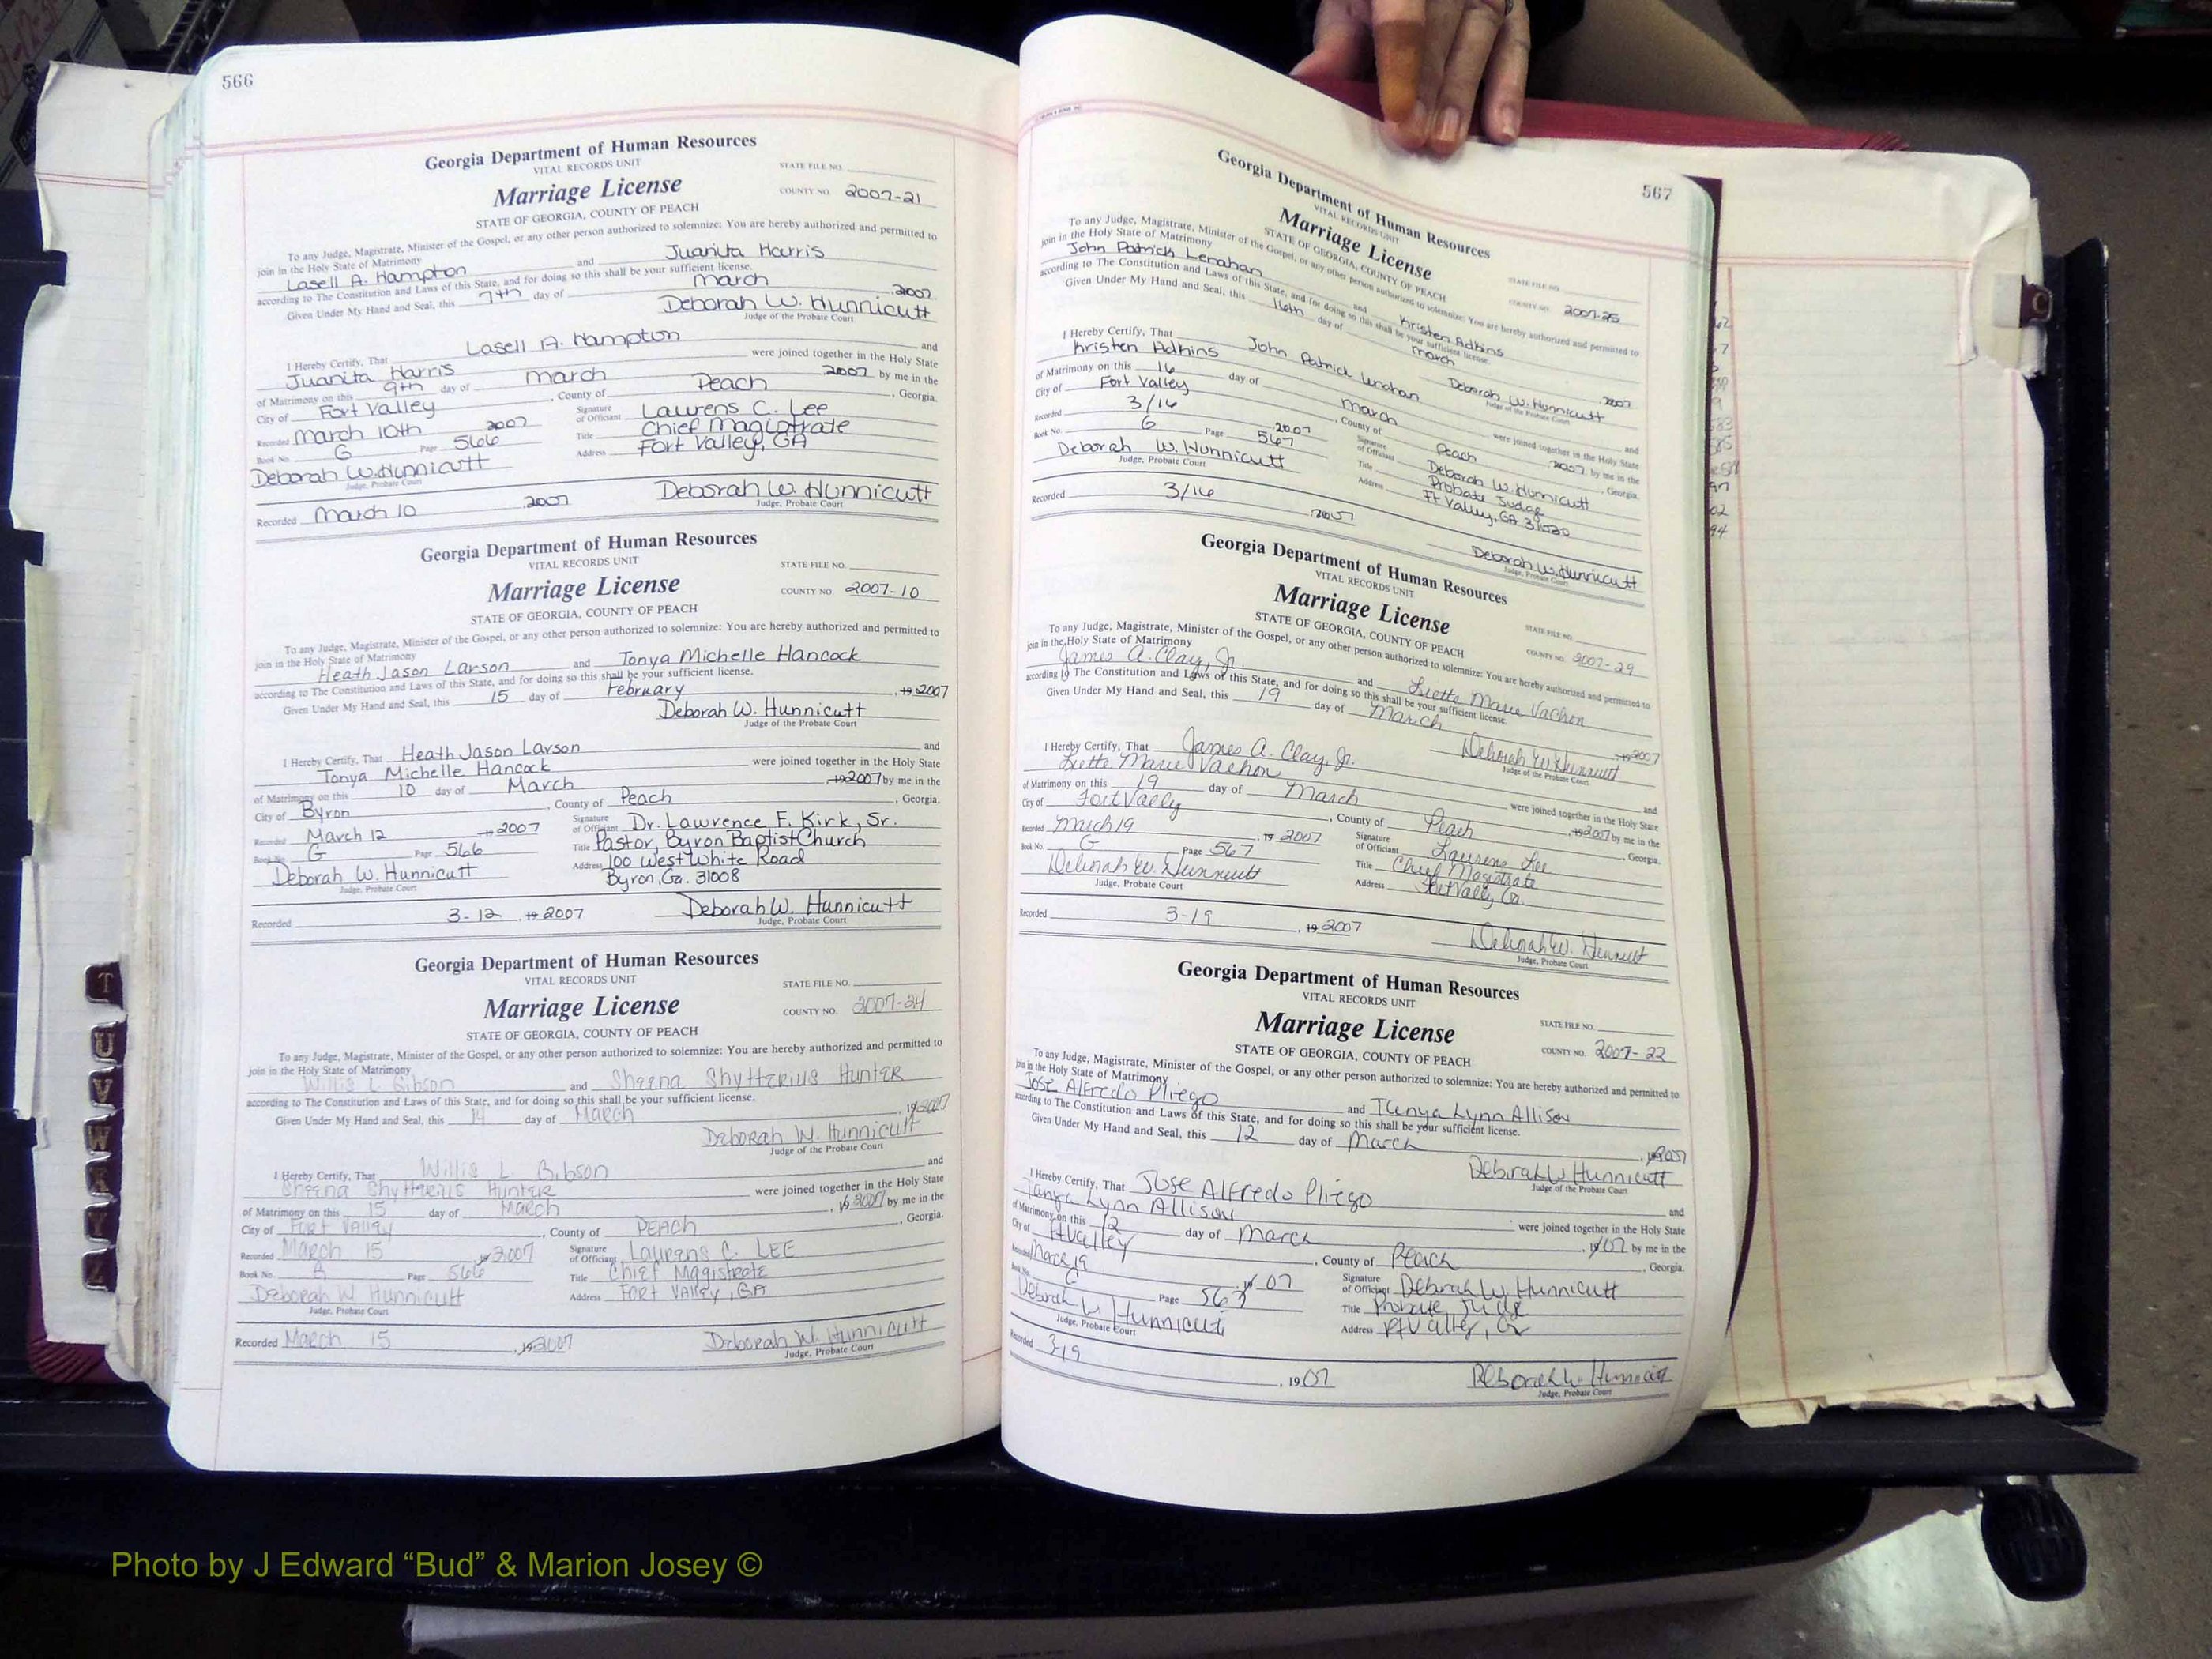 566
Georgia Department of Human Resources
VITAL RECORDS UNIT
STATE FILE NO.
Marriage License
COUNTY NO. 2007-21
STATE OF GEORGIA, COUNTY OF PEACH
To any Judge, Magistrate, Minister of the Gospel, or any other person authorized to solemnize: You are hereby authorized and permitted to
join in the Holy State of Matrimony
Lasell A. Hampton and Juanita Harris
according to The Constitution and Laws of this State, and for doing so this shall be your sufficient license.
Given Under My Hand and Seal, this 7th day of March 2007
Deborah W. Hunnicutt
Judge of the Probate Court
I Hereby Certify, That Lasell A. Hampton and
Juanita Harris were joined together in the Holy State
of Matrimony on this 9th day of March 2007 by me in the
City of Fort Valley, County of Peach, Georgia.
Recorded March 10th 2007 Signature of Officiant Laurens C. Lee
Book No. G Page 566 Title Chief Magistrate
Address Fort Valley, GA
Deborah W. Hunnicutt
Judge, Probate Court
Recorded March 10, 2007 Deborah W. Hunnicutt
Judge, Probate Court
Georgia Department of Human Resources
VITAL RECORDS UNIT
STATE FILE NO.
Marriage License
COUNTY NO. 2007-10
STATE OF GEORGIA, COUNTY OF PEACH
To any Judge, Magistrate, Minister of the Gospel, or any other person authorized to solemnize: You are hereby authorized and permitted to
join in the Holy State of Matrimony
Heath Jason Larson and Tonya Michelle Hancock
according to The Constitution and Laws of this State, and for doing so this shall be your sufficient license.
Given Under My Hand and Seal, this 15 day of February, 19 2007
Deborah W. Hunnicutt
Judge of the Probate Court
I Hereby Certify, That Heath Jason Larson and
Tonya Michelle Hancock were joined together in the Holy State
of Matrimony on this 10 day of March, 19 2007 by me in the
City of Byron, County of Peach, Georgia.
Recorded March 12 19 2007 Signature of Officiant Dr. Lawrence F. Kirk, Sr.
Book No. G Page 566 Title Pastor, Byron Baptist Church
Address 100 West White Road
Byron, Ga. 31008
Deborah W. Hunnicutt
Judge, Probate Court
Recorded 3-12, 19 2007 Deborah W. Hunnicutt
Judge, Probate Court
Georgia Department of Human Resources
VITAL RECORDS UNIT
STATE FILE NO.
Marriage License
COUNTY NO. 2007-24
STATE OF GEORGIA, COUNTY OF PEACH
To any Judge, Magistrate, Minister of the Gospel, or any other person authorized to solemnize: You are hereby authorized and permitted to
join in the Holy State of Matrimony
Willis L. Gibson and Sheena Shytterius Hunter
according to The Constitution and Laws of this State, and for doing so this shall be your sufficient license.
Given Under My Hand and Seal, this 14 day of March, 19 2007
Deborah W. Hunnicutt
Judge of the Probate Court
I Hereby Certify, That Willis L. Gibson and
Sheena Shytterius Hunter were joined together in the Holy State
of Matrimony on this 15 day of March, 19 2007 by me in the
City of Fort Valley, County of Peach, Georgia.
Recorded March 15 19 2007 Signature of Officiant Laurens C. Lee
Book No. G Page 566 Title Chief Magistrate
Address Fort Valley, GA
Deborah W Hunnicutt
Judge, Probate Court
Recorded March 15, 19 2007 Deborah W. Hunnicutt
Judge, Probate Court
567
Georgia Department of Human Resources
VITAL RECORDS UNIT
STATE FILE NO.
Marriage License
COUNTY NO. 2007-25
STATE OF GEORGIA, COUNTY OF PEACH
To any Judge, Magistrate, Minister of the Gospel, or any other person authorized to solemnize: You are hereby authorized and permitted to
join in the Holy State of Matrimony
John Patrick Lenahan and Kristen Adkins
according to The Constitution and Laws of this State, and for doing so this shall be your sufficient license.
Given Under My Hand and Seal, this 16th day of March 2007
Deborah W. Hunnicutt
Judge of the Probate Court
I Hereby Certify, That John Patrick Lenahan and
Kristen Adkins were joined together in the Holy State
of Matrimony on this 16 day of March 2007 by me in the
City of Fort Valley, County of Peach, Georgia.
Recorded 3/16 2007 Signature of Officiant Deborah W. Hunnicutt
Book No. G Page 567 Title Probate Judge
Address Ft Valley, GA 31030
Deborah W. Hunnicutt
Judge, Probate Court
Recorded 3/16 2007 Deborah W. Hunnicutt
Judge, Probate Court
Georgia Department of Human Resources
VITAL RECORDS UNIT
STATE FILE NO.
Marriage License
COUNTY NO. 2007-29
STATE OF GEORGIA, COUNTY OF PEACH
To any Judge, Magistrate, Minister of the Gospel, or any other person authorized to solemnize: You are hereby authorized and permitted to
join in the Holy State of Matrimony
James A. Clay, Jr. and Liette Marie Vachon
according to The Constitution and Laws of this State, and for doing so this shall be your sufficient license.
Given Under My Hand and Seal, this 19 day of March 19 2007
Deborah W. Hunnicutt
Judge of the Probate Court
I Hereby Certify, That James A. Clay, Jr. and
Liette Marie Vachon were joined together in the Holy State
of Matrimony on this 19 day of March, 19 2007 by me in the
City of Fort Vally, County of Peach, Georgia.
Recorded March 19, 19 2007 Signature of Officiant Laurens Lee
Book No. G Page 567 Title Chief Magistrate
Address Fort Vally Ga.
Deborah W. Hunnicutt
Judge, Probate Court
Recorded 3-19, 19 2007 Deborah W. Hunnicutt
Judge, Probate Court
Georgia Department of Human Resources
VITAL RECORDS UNIT
STATE FILE NO.
Marriage License
COUNTY NO. 2007-22
STATE OF GEORGIA, COUNTY OF PEACH
To any Judge, Magistrate, Minister of the Gospel, or any other person authorized to solemnize: You are hereby authorized and permitted to
join in the Holy State of Matrimony
Jose Alfredo Pliego and Tanya Lynn Allison
according to The Constitution and Laws of this State, and for doing so this shall be your sufficient license.
Given Under My Hand and Seal, this 12 day of March, 19 2007
Deborah W Hunnicutt
Judge of the Probate Court
I Hereby Certify, That Jose Alfredo Pliego and
Tanya Lynn Allison were joined together in the Holy State
of Matrimony on this 12 day of March, 19 07 by me in the
City of Ft Valley, County of Peach, Georgia.
Recorded March 19, 19 07 Signature of Officiant Deborah W Hunnicutt
Book No. G Page 567 Title Probate Judge
Address Ft Valley, Ga
Deborah W Hunnicutt
Judge, Probate Court
Recorded 3-19, 19 07 Deborah W. Hunnicutt
Judge, Probate Court
T
U
V
W
X
Y
Z
C
Photo by J Edward “Bud” & Marion Josey ©